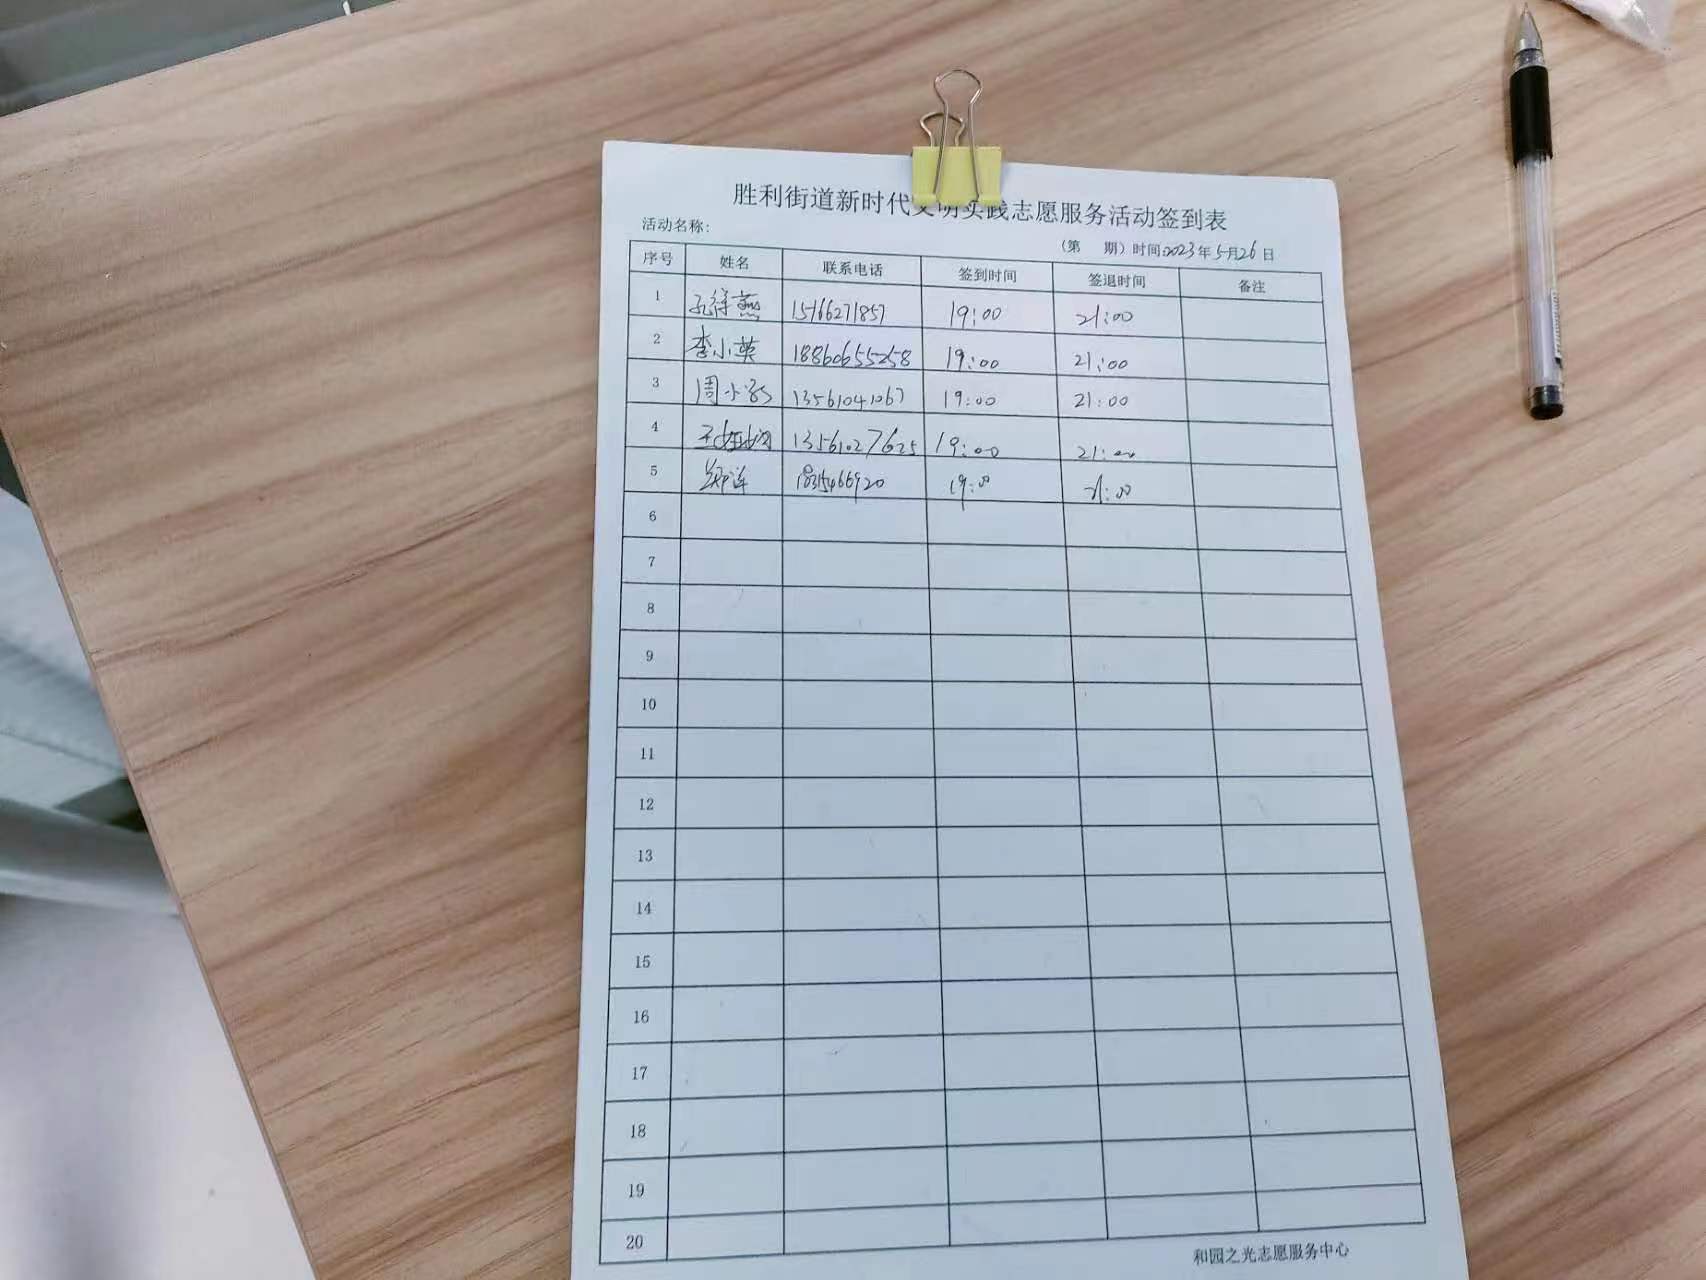 胜利街道新时代文明实践志愿服务活动签到表
活动名称:
(第 期) 时间:2023年5月26日
序号 姓名 联系电话 签到时间 签退时间 备注
1 孔祥燕 15166271857 19:00 21:00
2 李小英 18860655258 19:00 21:00
3 周小 13561041067 19:00 21:00
4 王 13561027625 19:00 21:00
5 郑莲 18315466920 19:00 21:00
6
7
8
9
10
11
12
13
14
15
16
17
18
19
20
和园之光志愿服务中心